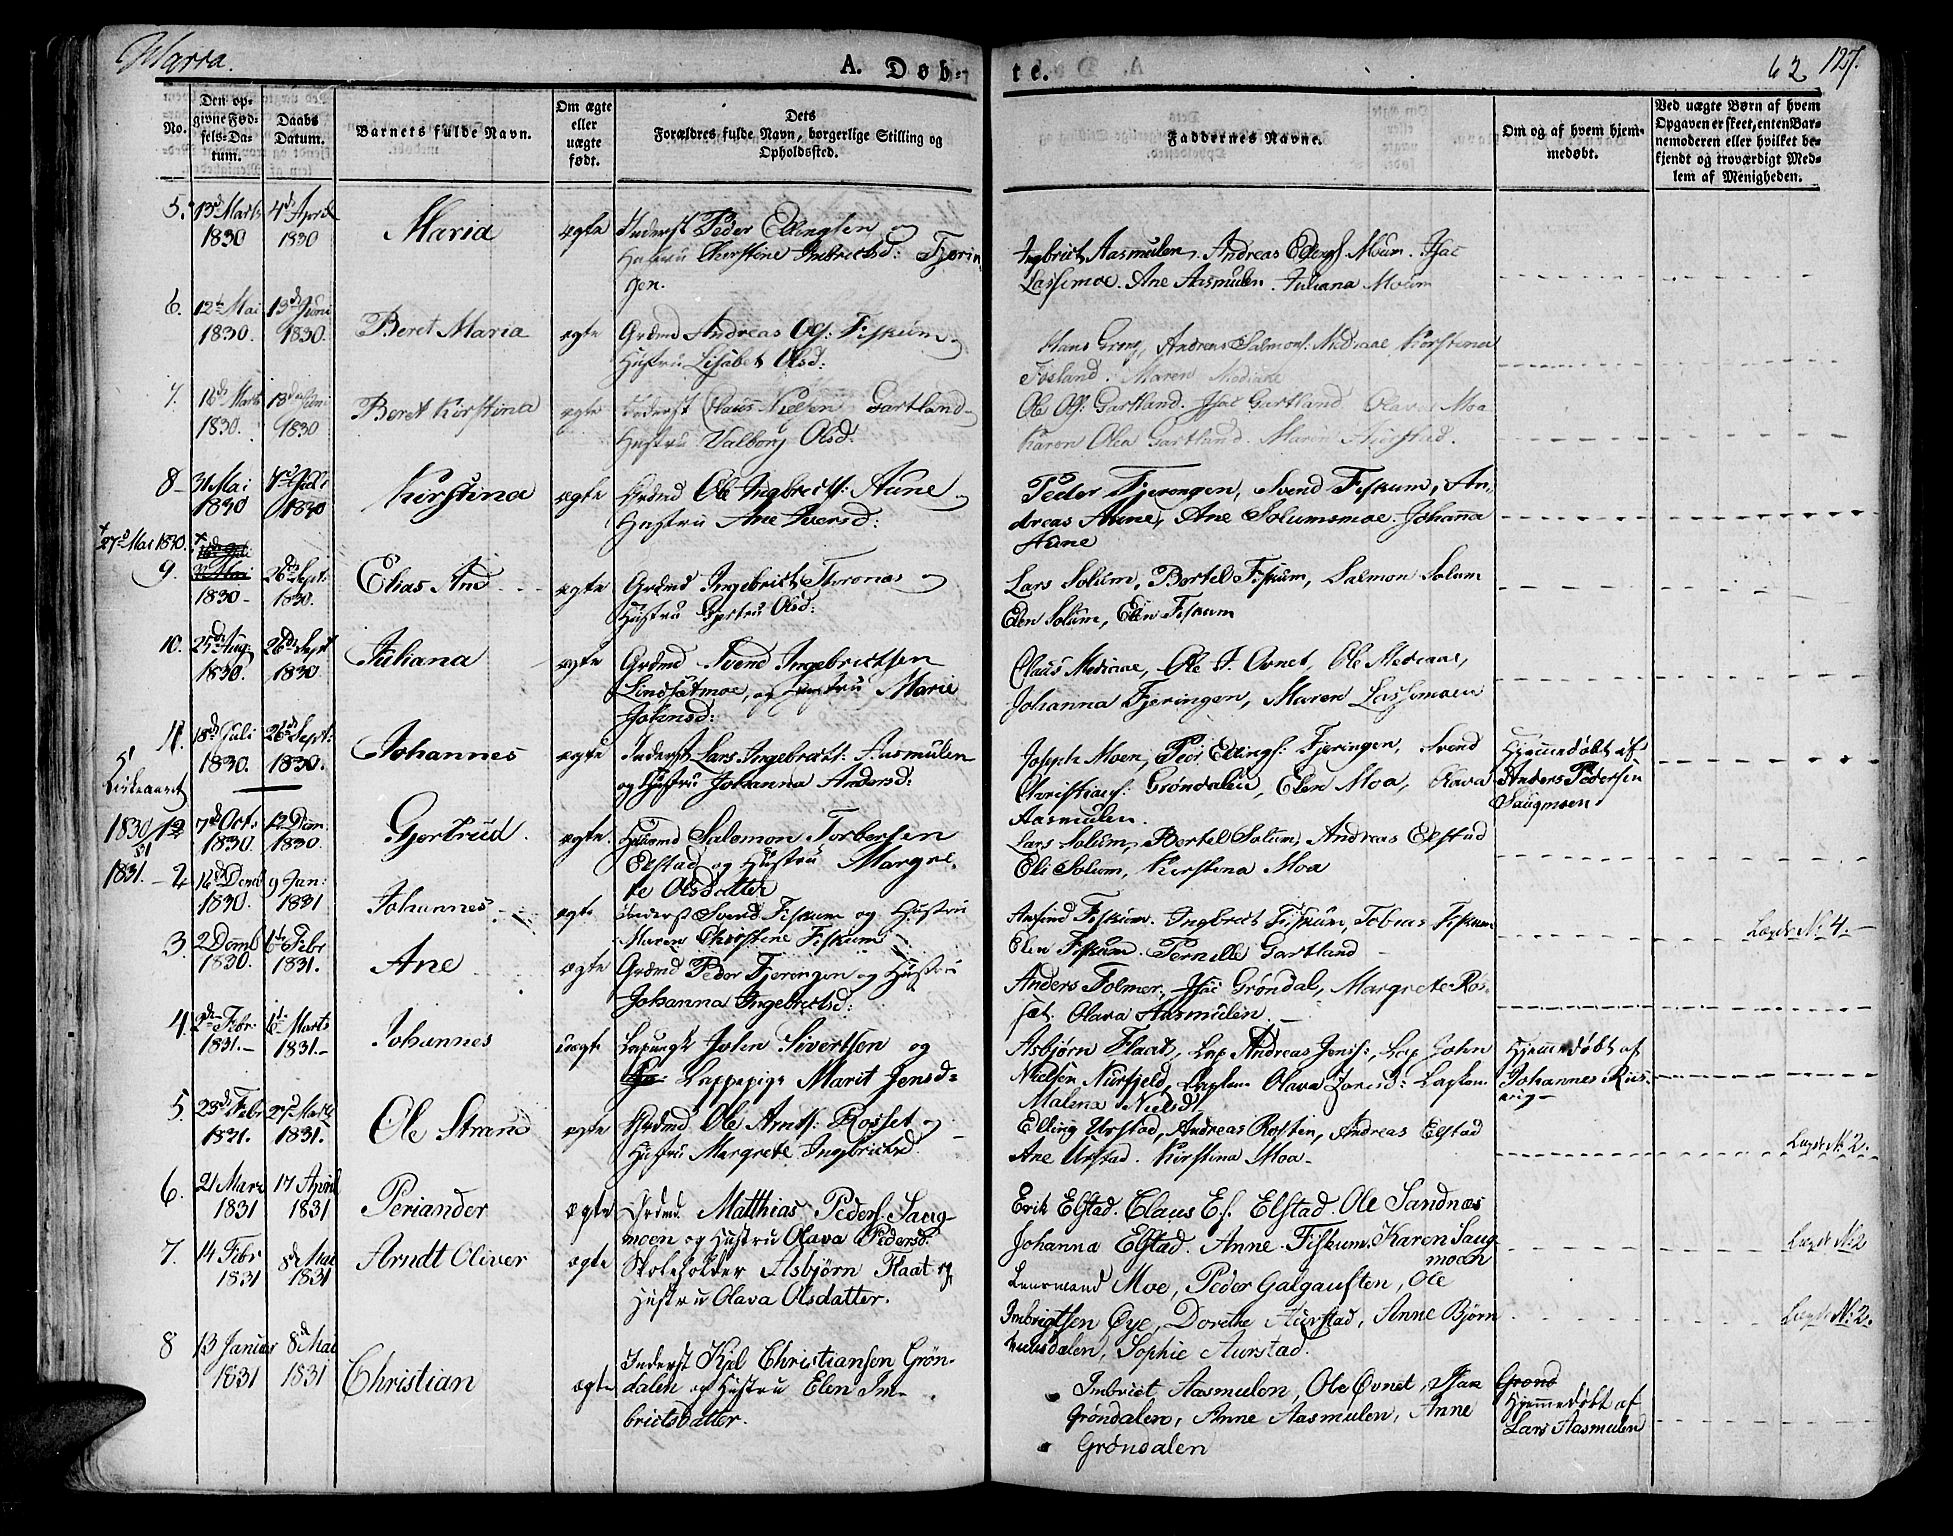 Harra.
A. Døb-
te.
62 127.
No.
Den op-
givne Fød-
sels-Da-
tum.
Daabs
Datum.
Barnets fulde Navn.
Om ægte
eller
uægte
født.
Dets
Forældres fulde Navn, borgerlige Stilling og
Opholdssted.
Faddernes Navne.
Om og af hvem hjem-
medøbt.
Ved uægte Børn af hvem
Opgaven er skeet, enten Bar-
nemoderen eller hvilket be-
kjendt og troværdigt Med-
lem af Menigheden.
5. 13d Marts 4d April
1830 1830
Maria
ægte
Inderst Peder Ellingsen og
Hustru Kirstine Imbrictsd: Fjerin-
gen.
Ingbrict Aasmulen, Andreas Ellings Moum. Isac
Lassemoe. Ane Aasmulen. Juliana Moum
6. 12te Mai 13de Juni
1830. 1830.
Beret Maria
ægte
Grdmd Andreas Ols: Fiskum og
Hustru Lisabet Olsd:
Hans Grong, Andreas Salmons: Mediaae Kirstina
Fosland. Maren Mediaae
7. 16de Marts 13de Juni
1830. 1830
Beret Kirstina
ægte
Inderst Claus Nielsen Gartland
Hustru Valborg Olsd:
Ole Ols: Gartland. Isac Gartland Olava Moa
Karen Olea Gartland. Maren
8 31 Mai 4de Juli
1830 1830
Kirstina
ægte
Grdmd Ole Ingbrictss: Aune og
Hustru Ane Iversd:
Peder Fjerongen, Svend Fiskum, An-
dreas Aune, Ane Solumsmoe. Johanna
Aune
+ 27de Mai 1830.
9. 31 Mai 26de Sept:
1830 1830.
Elias And
ægte
Grdmd Ingebrict Thronæs og
Hustru Olsd:
Lars Solum, Bertel Fiskum, Salmon Solum
Elen Solum, Elen Fiskum
10. 25de Aug: 26de Sept
1830. 1830
Juliana
ægte
Grdmd Svend Ingebrictsen
Lindsætmoe, og Hustru Marie
Johnsd:
Claus Mediaae, Ole J. Ovnet, Ole Mediaas,
Johanna Fjeringen, Maren Lassemoen
11. 18de Juli 26de Sept:
1830. 1830.
Johannes
ægte
Inderst Lars Ingebrictss: Aasmulen
og Hustru Johanna Andersd:
Joseph Moen, Peder Ellings: Fjeringen, Svend
Christians: Grøndalen, Elen Moa, Olava
Aasmulen.
Hjemmedøbt af
Anders Pedersen
Saugmoen
Kirkeaaret
1830/31
12 7de Oct: 12 Decm.
1830. 1830.
Gjertrud.
ægte.
Huusmd Salemon Torbersen
Elstad og Hustru Margre-
te Olsdatter
Lars Solum, Bertel Solum, Andreas Elstad
Eli Solum, Kirstina Moa
1831. 2 16de Decmb 9 Jan:
1830. 1831
Johannes
ægte
Inderst Svend Fiskum og Hustru
Maren Christine Fiskum
Arfind Fiskum. Ingbrict Fiskum, Tobias Fiskum
Elen Fiskum. Pernille Gartland
Lægds No 4.
3. 2 Decmb 6te Febr
1830. 1831.
Ane
ægte
Grdmd Peder Fjerongen og Hustru
Johanna Ingebrictsd:
Anders Folmer, Isac Grøndal, Margrete Ros-
set. Olava Aasmulen.
4. 2den Febr. 6te Marts
1831. 1831.
Johannes
uægte
Lapungk John Sivertsen og
Lappepige Marit Jensd:
Asbjørn Flaat, Lap Andreas Jenss:, Lap John
Nielsen Nurfjeld, Lapkone Olava Larsd: Lapkone
Malena Nielsd:
Hjemmedøbt af
Johannes Rus-
vig
5 23de Febr 27de Marts
1831. 1831.
Ole Strand
ægte
Grdmd Ole Arnts: Rosset og
Hustru Margrete Ingbrictsd.
Elling Urstad, Andreas Rosten, Andreas Elstad
Ane Urstad. Kirstina Moa
Lægds No 2.
6. 21 Mars 17 April
1831 1831
Periander
ægte
Grdmd. Matthias Peders. Saug-
moen og Hustru Olava Pedersd:
Erik Elstad. Claus E.s. Elstad. Ole Sandnæs
Johanna Elstad. Anne Fiskum. Karen Saug-
moen
Lægds No 2
7. 14 Febr 8de Mai
1831 1831
Arndt Oliver
ægte
Skoleholder Asbjørn Flaat og
Hustru Olava Olsdatter.
Leensmand Moe, Peder Galgauften, Ole
Imbrigtsen Øye, Dorethe Aurstad, Anne Bjørn
dalen, Sophie Aurstad.
Lægds No 2.
8 13 Januar 8de Mai
1831 1831
Christian
ægte
Inderst Kjel Christiansen Grøn-
dalen og Hustru Elen Im-
brictsdatter.
Imbrict Aasmulen, Ole Øvnet, Isak
Grøndalen, Anne Aasmulen, Anne
Grøndalen
Grønd
Hjemmedøbt af
Lars Aasmulen